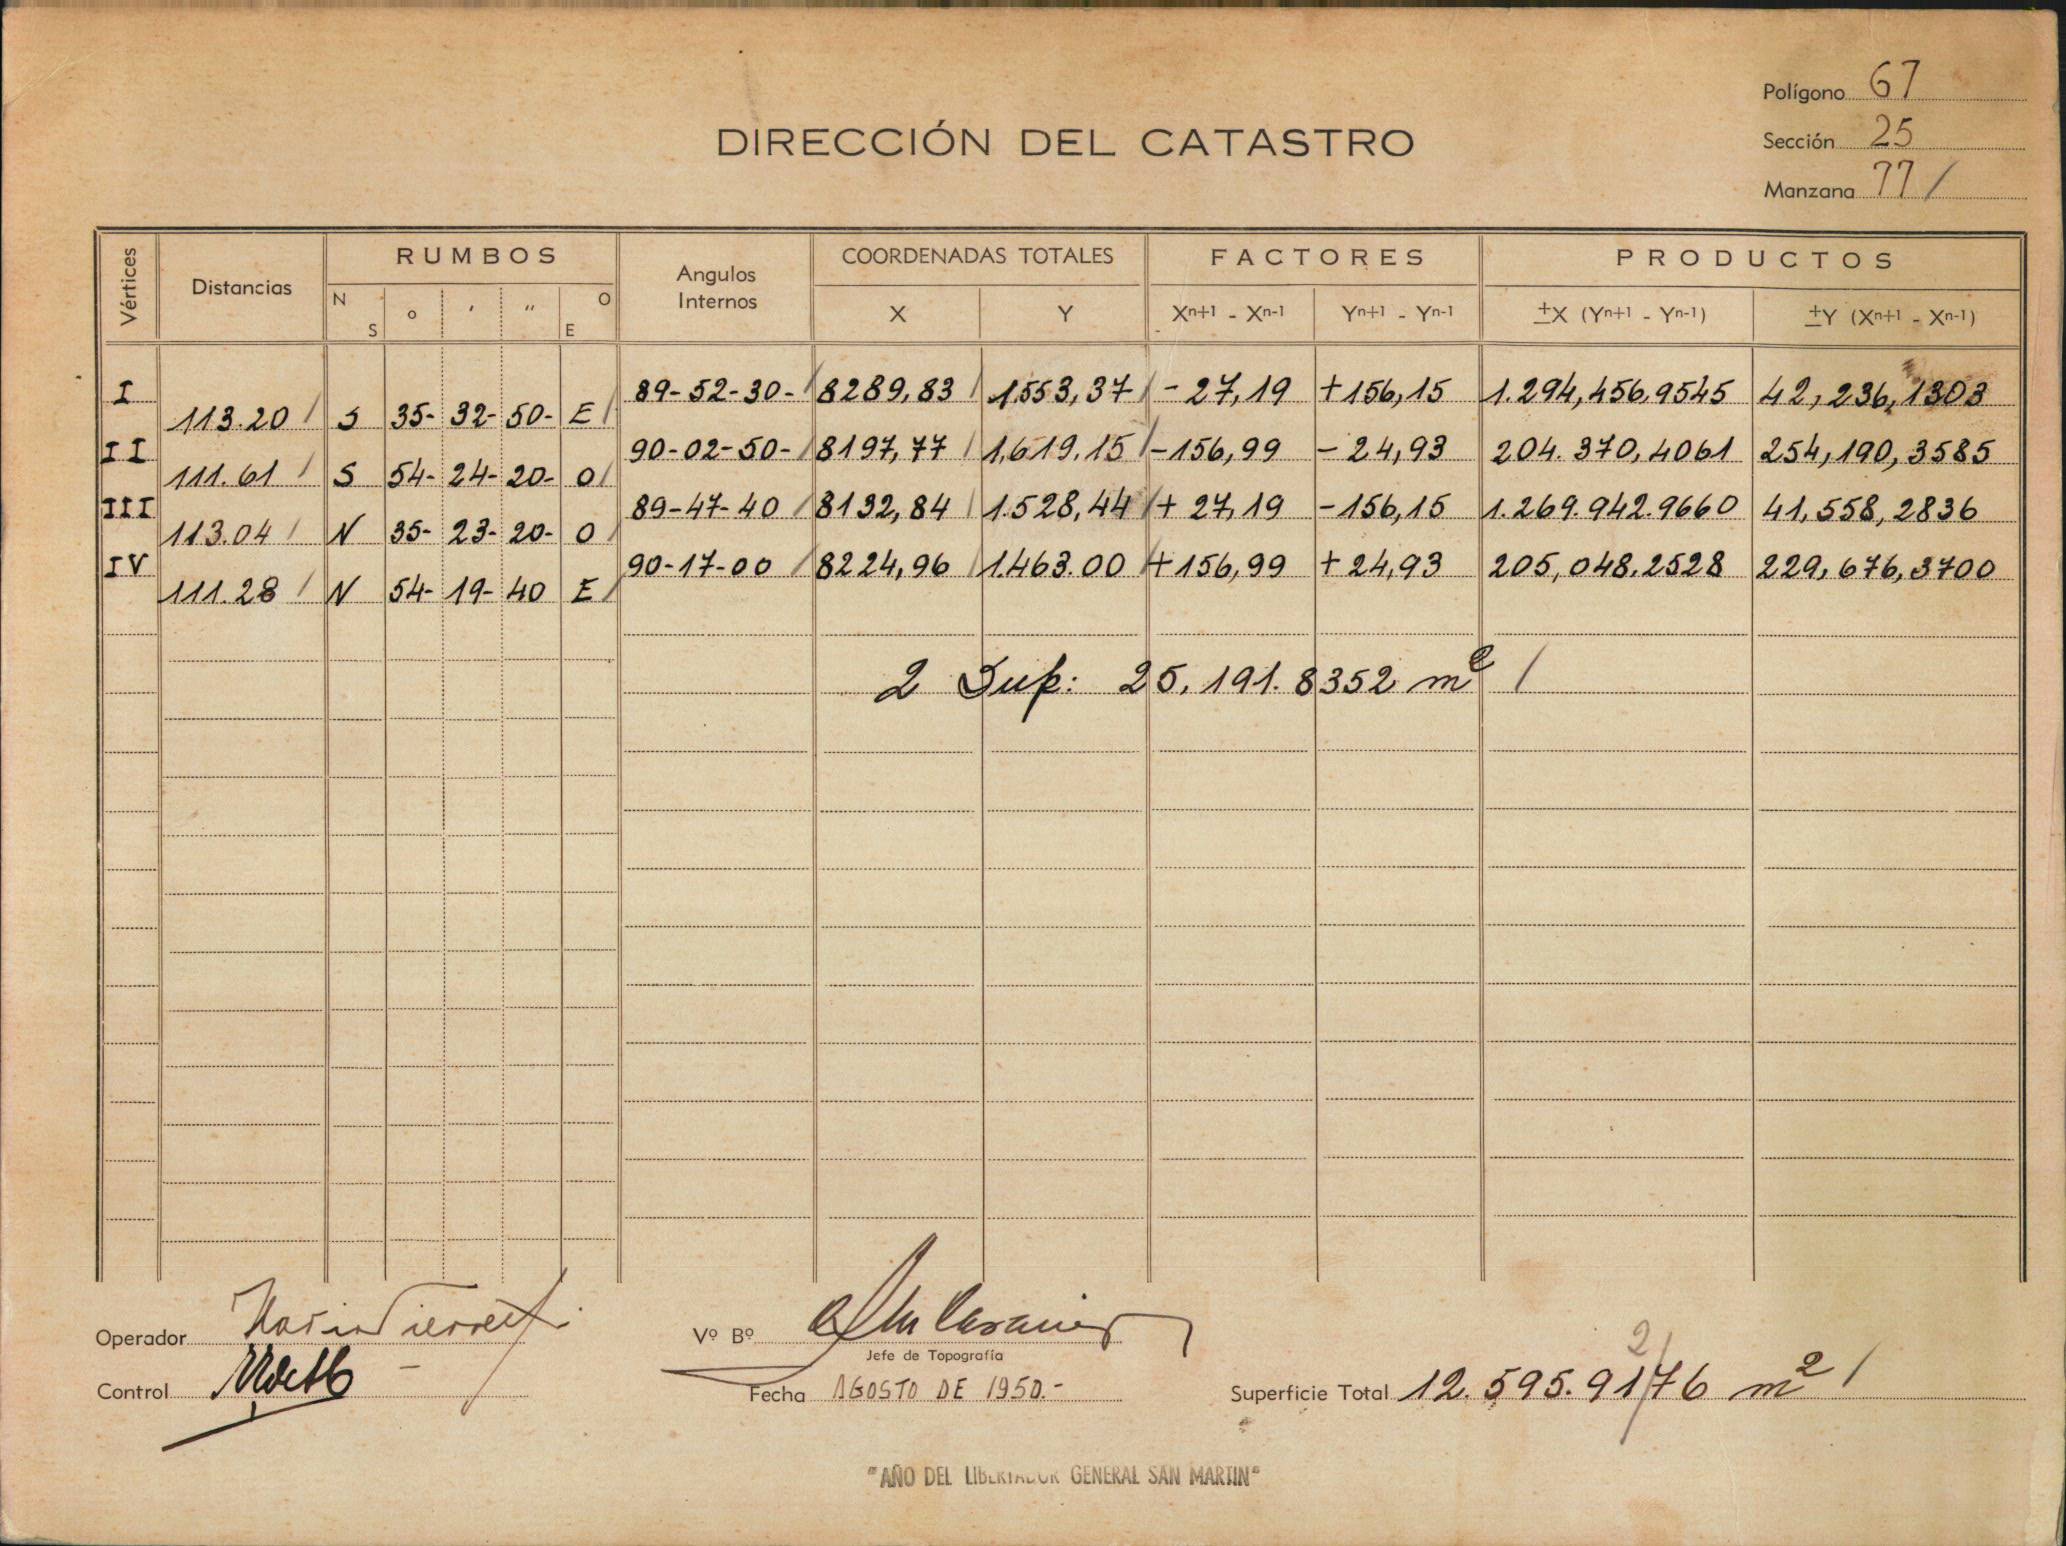 Polígono 67
DIRECCIÓN DEL CATASTRO
Sección 25
Manzana 77 /
Vértices Distancias RUMBOS Angulos Internos COORDENADAS TOTALES FACTORES PRODUCTOS
N S ° ' " O E X Y Xn+1 - Xn-1 Yn+1 - Yn-1 ±X (Yn+1 - Yn-1) ±Y (Xn+1 - Xn-1)
I 89-52-30- / 8289,83 / 1.553,37 / -27,19 +156,15 1.294,456,9545 42,236,1303
113.20 / S 35- 32- 50- E /
II 90-02-50- / 8197,77 / 1,619.15 / -156,99 -24,93 204.370,4061 254,190,3585
111.61 / S 54- 24- 20- O /
III 89-47-40 / 8132,84 / 1.528,44 / +27,19 -156,15 1.269.942.9660 41,558,2836
113.04 / N 35- 23- 20- O /
IV 90-17-00 / 8224,96 / 1.463.00 / +156,99 +24,93 205,048.2528 229,676,3700
111.28 / N 54- 19- 40 E /
2 Sup: 25.191.8352 m² /
Operador
Vº Bº
Jefe de Topografía
2/
Control
Fecha AGOSTO DE 1950.-
Superficie Total 12.595.9176 m² /
"AÑO DEL LIBERTADOR GENERAL SAN MARTIN"